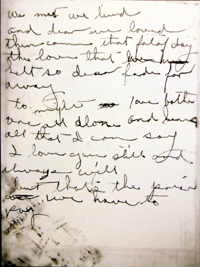 we met we lived
and dear we loved
then comes that fatal day
the love that
felt so dear fades far
away
to night love
one all alone and
all that I can say
I love you still and
always will
but that's the price
we have to
pay